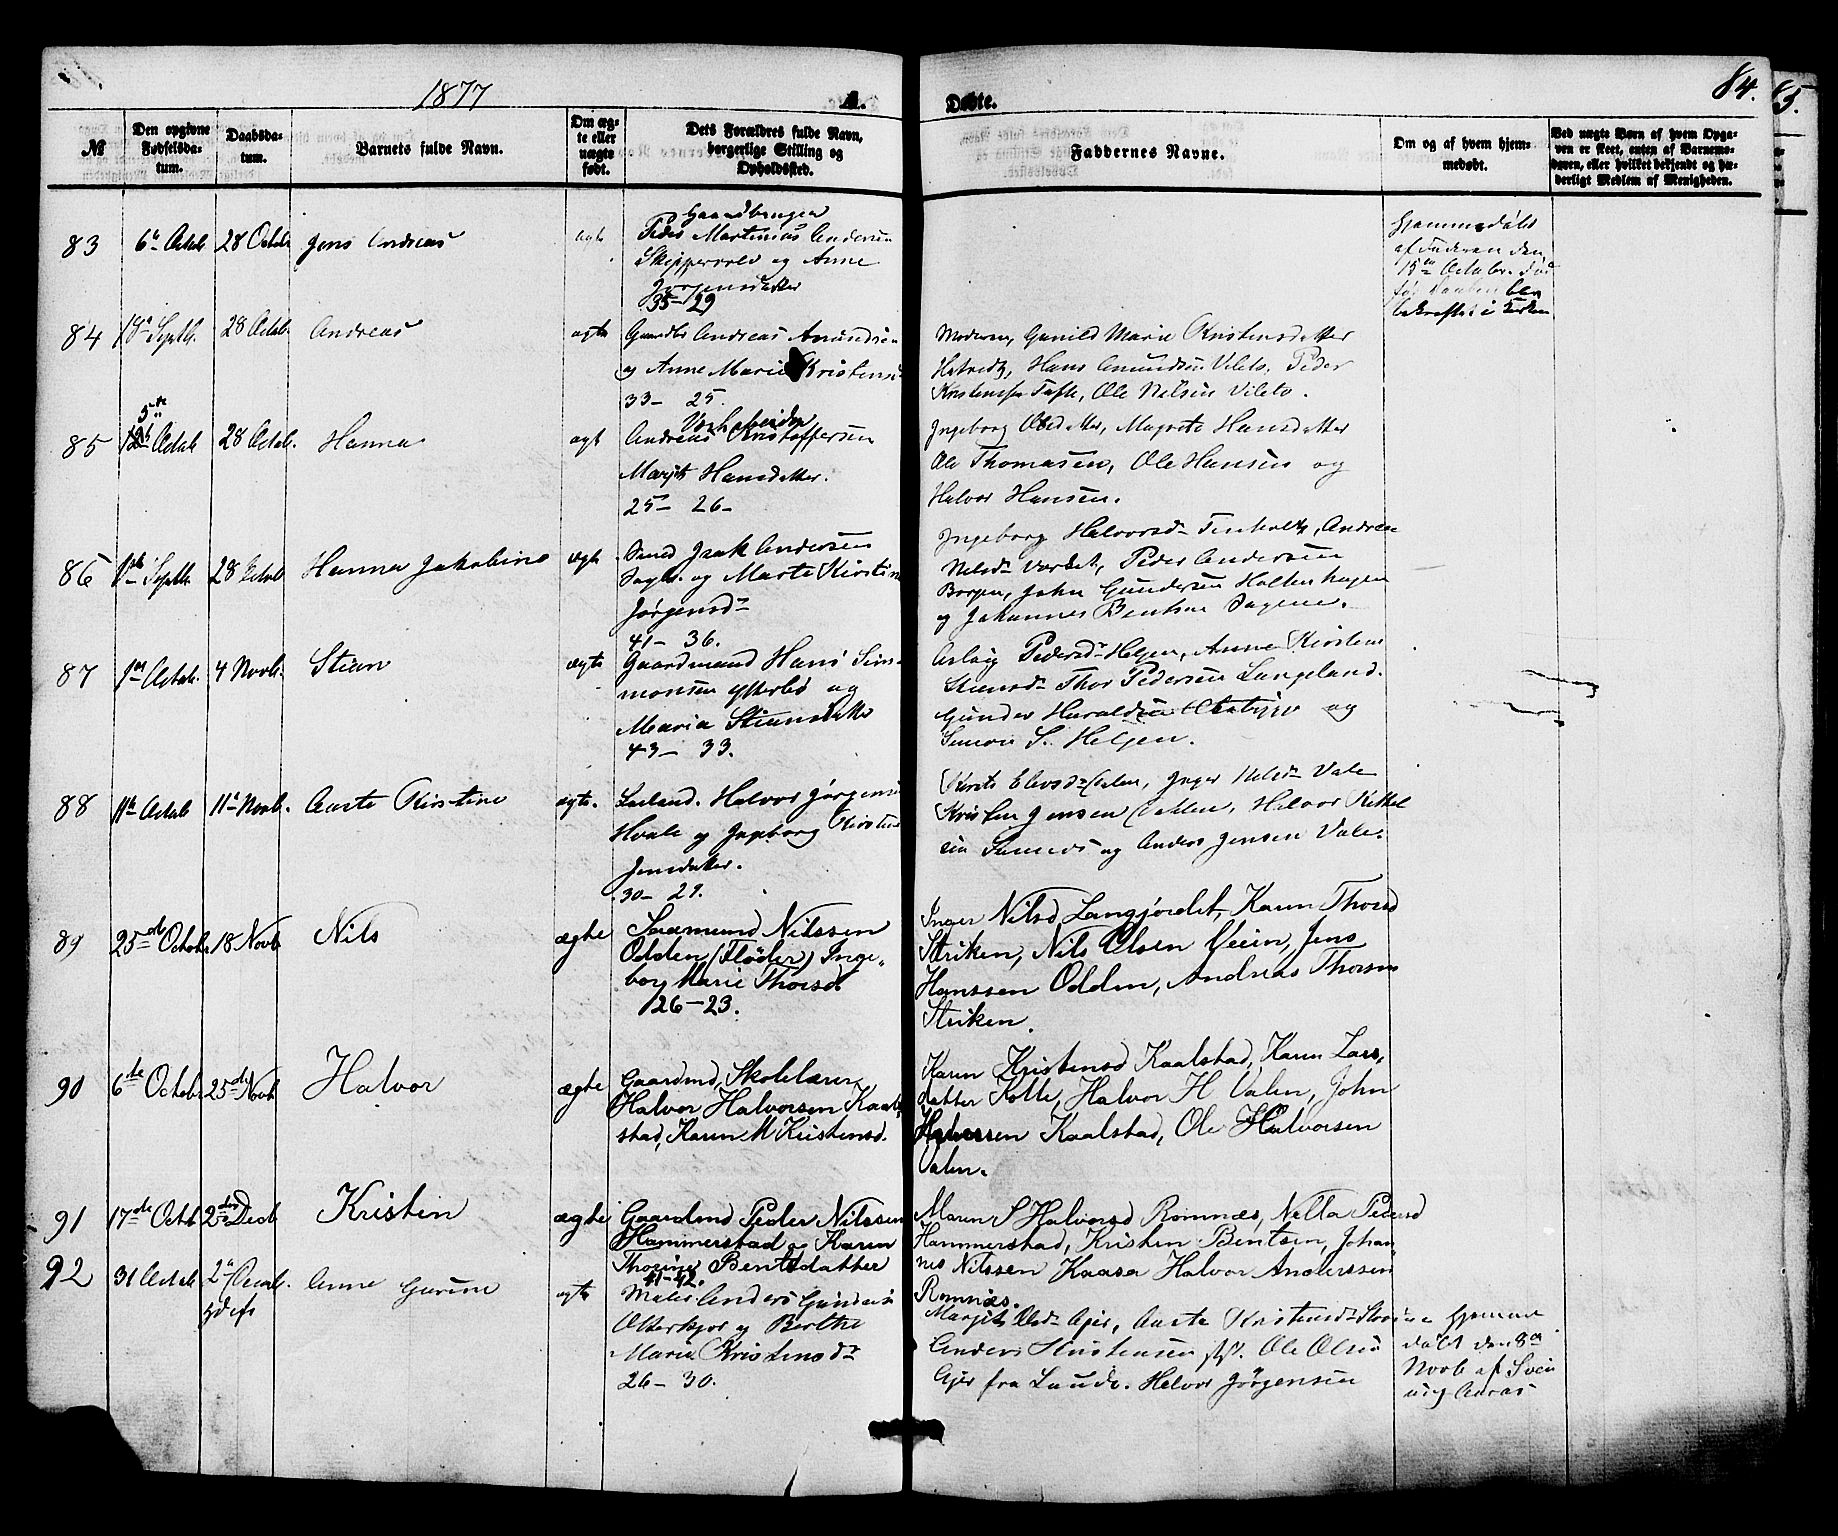 1877
1.
Døbte.
84.
85.
№
Den opgivne Fødselsdatum.
Daabsdatum.
Barnets fulde Navn.
Om ægte eller uægte født.
Dets Forældres fulde Navn, borgerlige Stilling og Opholdssted.
Faddernes Navne.
Om og af hvem hjemmedøbt.
Ved uægte Børn af hvem Opgaven er skeet, enten af Barnemoderen, eller hvilket bekjendt og hæderligt Medlem af Menigheden.
83
6te Octob
28 Octob
Jens Andreas
ægte
Gaardbruger
Peder Martinius Andersen
Skippervold og Anne
Jørgensdatter
35-29
Hjemmedøbt
af Faderen den
15de Octobr.
før Daaben blev
bekræftet i Kirken
84
Septb.
28 Octob.
Andreas
ægte
Andreas Amundsen
og Anne Marie Kristens
33- 25.
Moderen, Gunild Marie Kristensdatter
Hans Amundsen Vibeto, Peder
Kristensen Tufte, Ole Nilsen Vibeto.
85
5te
Octob
28 Octob.
Hanna
ægt
Andreas Kristoffersen
Margit Hansdatter.
25- 26-
Ingeborg Olsdatter, Magrete Hansdatter
Ole Thomasen, Ole Hansen og
Halvor Hansen.
86
Septb.
28 Octob
Hanna Jakobine
ægte
Isak Andersen
og Marte Kirstine
Jørgensdr
41- 36.
Ingeborg Halvorsdr
Nelsdr Vordet, Peder Andersen
Borgen, John Gundersen Holtenhagen
og Johannes Bentsen Sagene.
87
1ste Octob.
4 Novb.
Stian
ægte
Gaardmand Hans Simonsen
Ytterbø og
Maria Stiansdatter
43- 33.
Aslaug Pedersdr Helgen, Anne Kirstine
Stiansdr Thor Pedersen Langeland.
Gunder Haraldsen og
Simon S. Helgen.
88
11te Octob
11te Novb.
Aaste Kirstine
ægte.
Leiland. Halvor Jørgensen
Hvale og Ingeborg Kirstine
Jensdatter.
30- 29.
Kirsti Elevsdr Inger Nelsdr Vale
Kristen Jensen Halvor Kittel
sen og Anders Jensen Vale.
89
25de Octobr
18 Novb
Nils
ægte
Saamund Nilssen
Odden (Fløder) Inge„
borg Marie Thorsd.
26-23.
Inger Nilsd Langjordet, Karen Thorsd
Striken, Nils Olsen Veien, Jens
Hanssen Odden, Andreas Thorsen
Striken.
90
6te Octobr
25de Novb
Halvor
ægte
Gaardmd, Skolelærer
Halvor Halvorsen Kaal„
stad, Karen M Kristensd.
Karen Kristensd Kaalstad, Karen Lars„
datter Kolle, Halvor H Valen, John
Halvorssen Kaalstad, Ole Halvorsen
Valen.
91
17de Octbr
2den Decb
Kristen
ægte
Gaardmd Peder Nilssen
Hammerstad og Karen
Thorine Bentsdatter
41-42.
Maren S Halvorsd Romnæs, Nella Pedersd
Hammerstad, Kristen Bentsen, Johan„
nes Nilssen Kaasa Halvor Anderssen
Romnæs.
92
31 Octob
2de Decb.
Anne Gurine
ægte
Maler Anders Gundersen
Otterkjær og Berthe
Maria Kristensdr
26-30.
Margit Olsdr Ajer, Aaste Kristensdr
Anders Kristensen Ole Olsen
Ajer fra Lunde. Helvor Jørgensen
Hjemme
døbt den 8de
Novb af Svei
nung Aaras